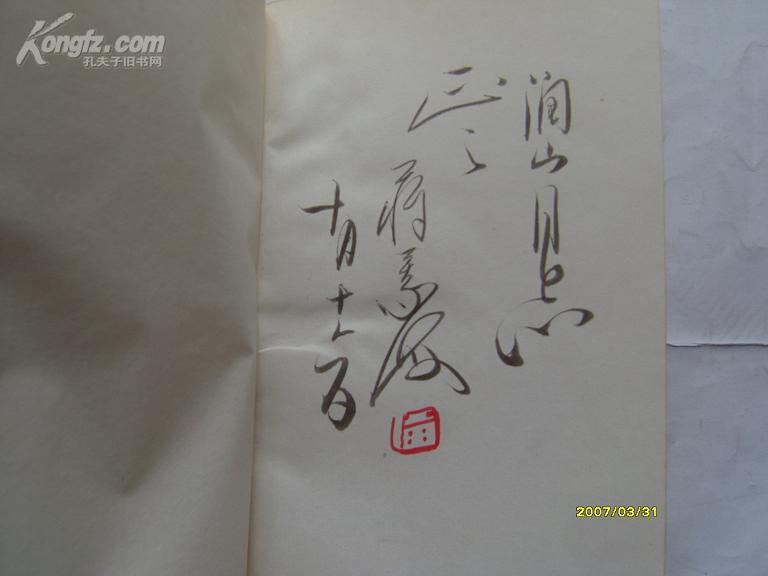 Kongfz.com
孔夫子旧书网
润山同志
正之
蒋
十月十日
2007/03/31